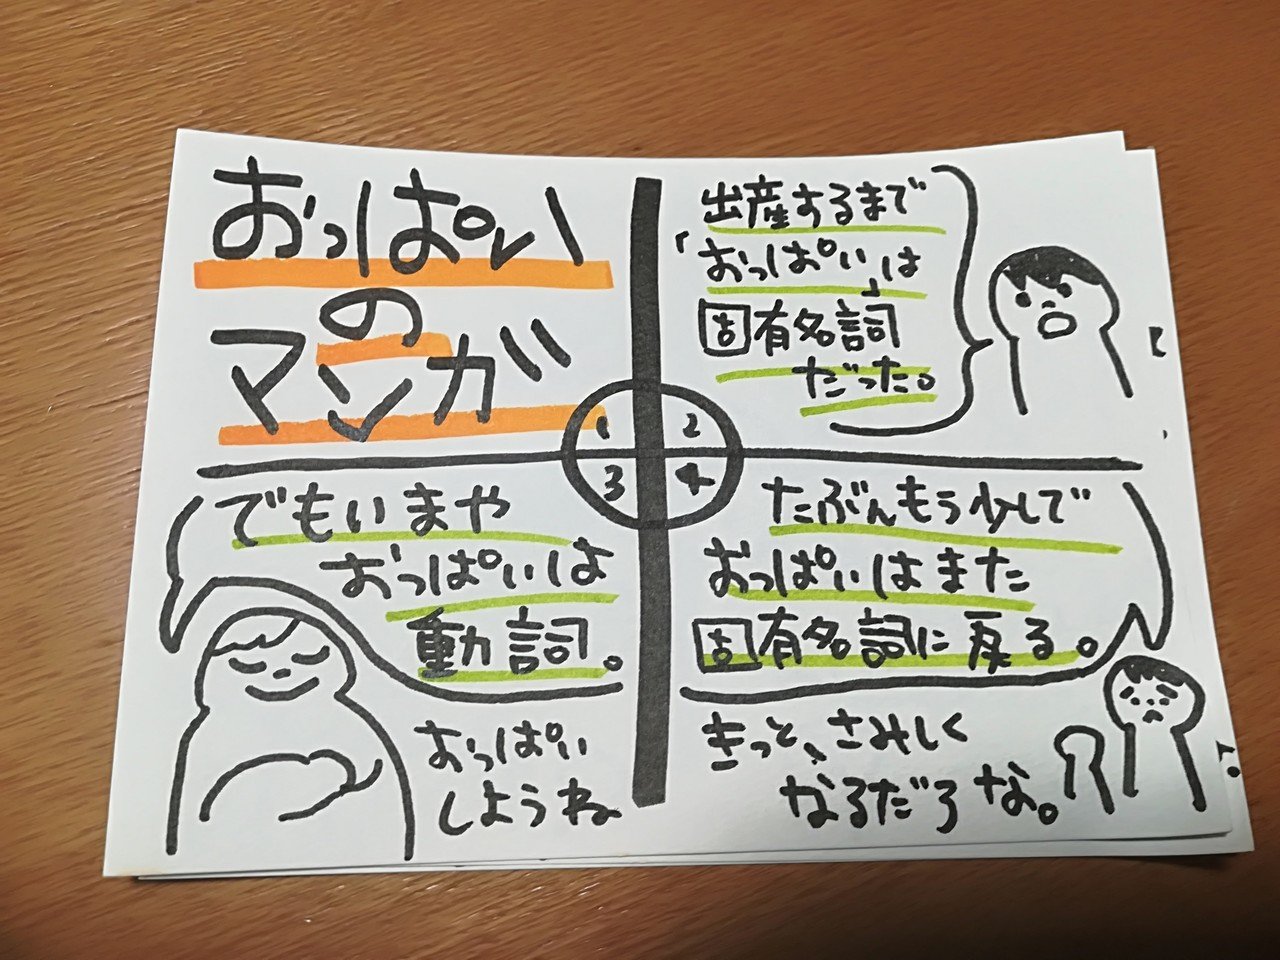 おっぱい
の
マンガ
1
2
3
4
出産するまで
「おっぱい」は
固有名詞
だった。
でもいまや
おっぱいは
動詞。
おっぱい
しようね
たぶんもう少しで
おっぱいはまた
固有名詞に戻る。
きっと、さみしく
なるだろうな。